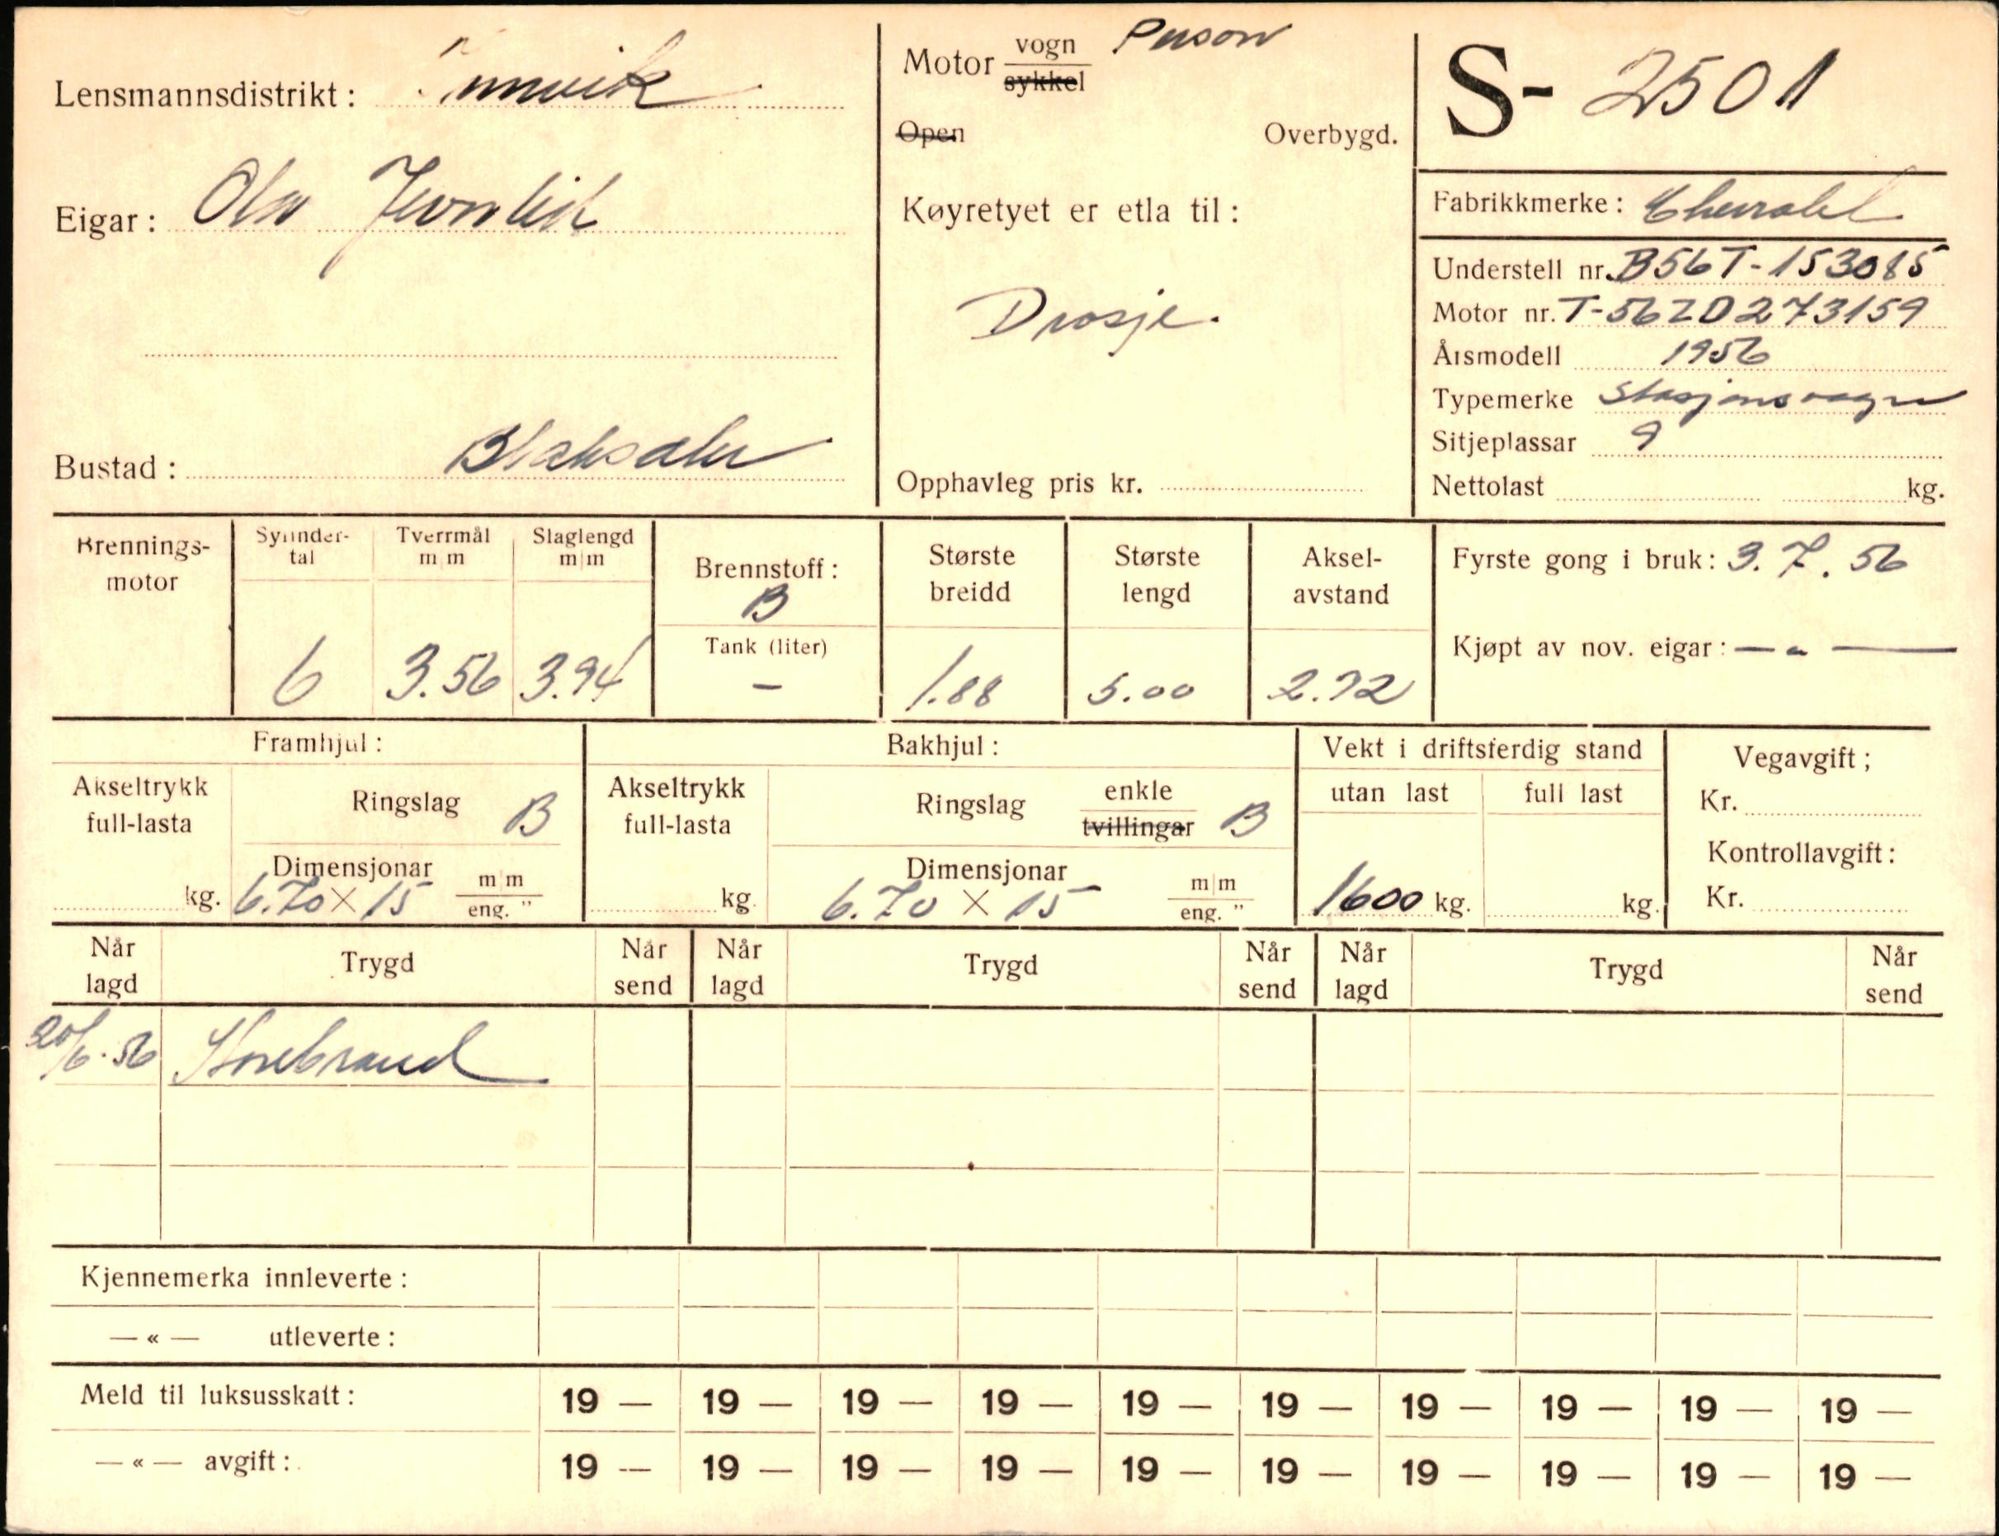 Lensmannsdistrikt: Innvik
Eigar: Olav
Bustad: Blaksæter
Motor vogn Person
sykkel
Open Overbygd.
Køyretyet er etla til:
Drosje.
Opphavleg pris kr.
S- 2501
Fabrikkmerke: Chevrolet
Understell nr. B56T-153085
Motor nr. T-56ZD273159
Årsmodell 1956
Typemerke Stasjonsvogn
Sitjeplassar 9
Nettolast kg.
Brennings-
motor
Sylinder-
tal
6
Tverrmål
m|m
3.56
Slaglengd
m|m
3.94
Brennstoff:
B
Tank (liter)
–
Største
breidd
1.88
Største
lengd
5.00
Aksel-
avstand
2.92
Fyrste gong i bruk: 3.7.56
Kjøpt av nov. eigar: — „ —
Framhjul:
Akseltrykk
full-lasta
kg.
Ringslag B
Dimensjonar
6.70 × 15
m|m
eng. "
Bakhjul:
Akseltrykk
full-lasta
kg
Ringslag enkle
tvillingar B
Dimensjonar
6.70 × 15
m|m
eng. "
Vekt i driftsferdig stand
utan last full last
1600 kg. kg.
Vegavgift;
Kr.
Kontrollavgift:
Kr.
Når
lagd Trygd Når
send Når
lagd Trygd Når
send Når
lagd Trygd Når
send
20/6.56 Storebrand
Kjennemerka innleverte:
— « — utleverte:
Meld til luksusskatt: 19 — 19 — 19 — 19 — 19 — 19 — 19 — 19 — 19 — 19 —
— « — avgift: 19 — 19 — 19 — 19 — 19 — 19 — 19 — 19 — 19 — 19 —